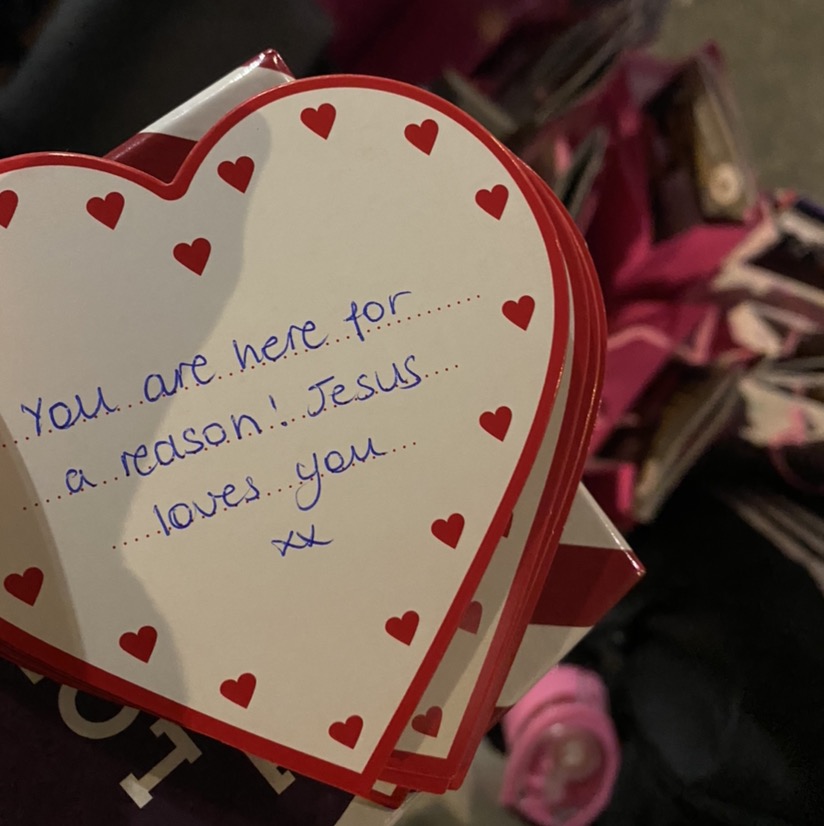 You are here for
a reason! Jesus
loves you
xx